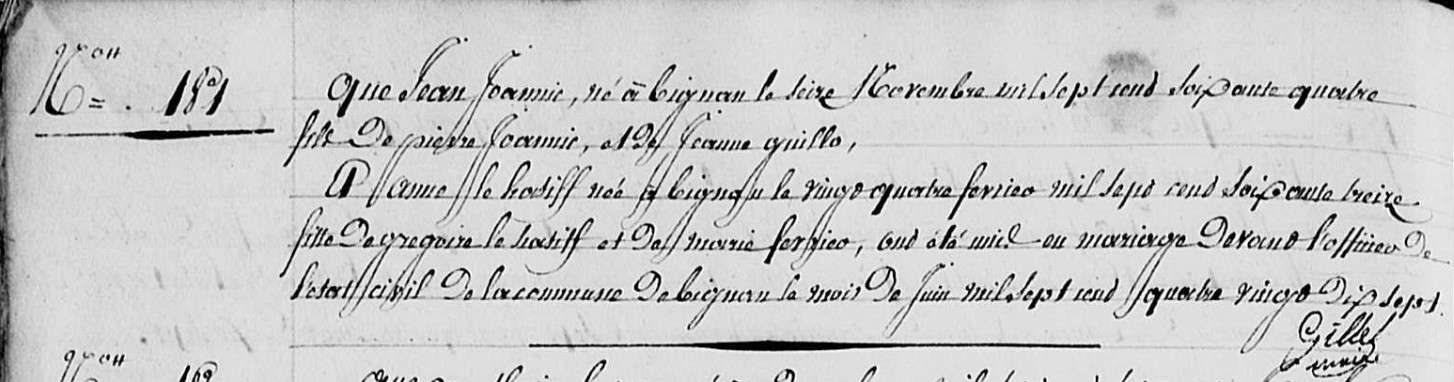 N.on 181
Que Jean Joannic, né à bignan le seize Novembre mil sept cend soixante quatre
fils De pierre Joannic, et de Jeanne guillo,
Et anne le hasiff née a bignan le vingt quatre fevrieo mil sept cend soixante treize
fille De gregoire le hasiff et De marie fevrieo, ond été unie en mariage Devand l'officieo De
l'etat civil De la commune De bignan le mois De Juin mil sept cend quatre vingt dix sept.
Gillet
maire
N.on